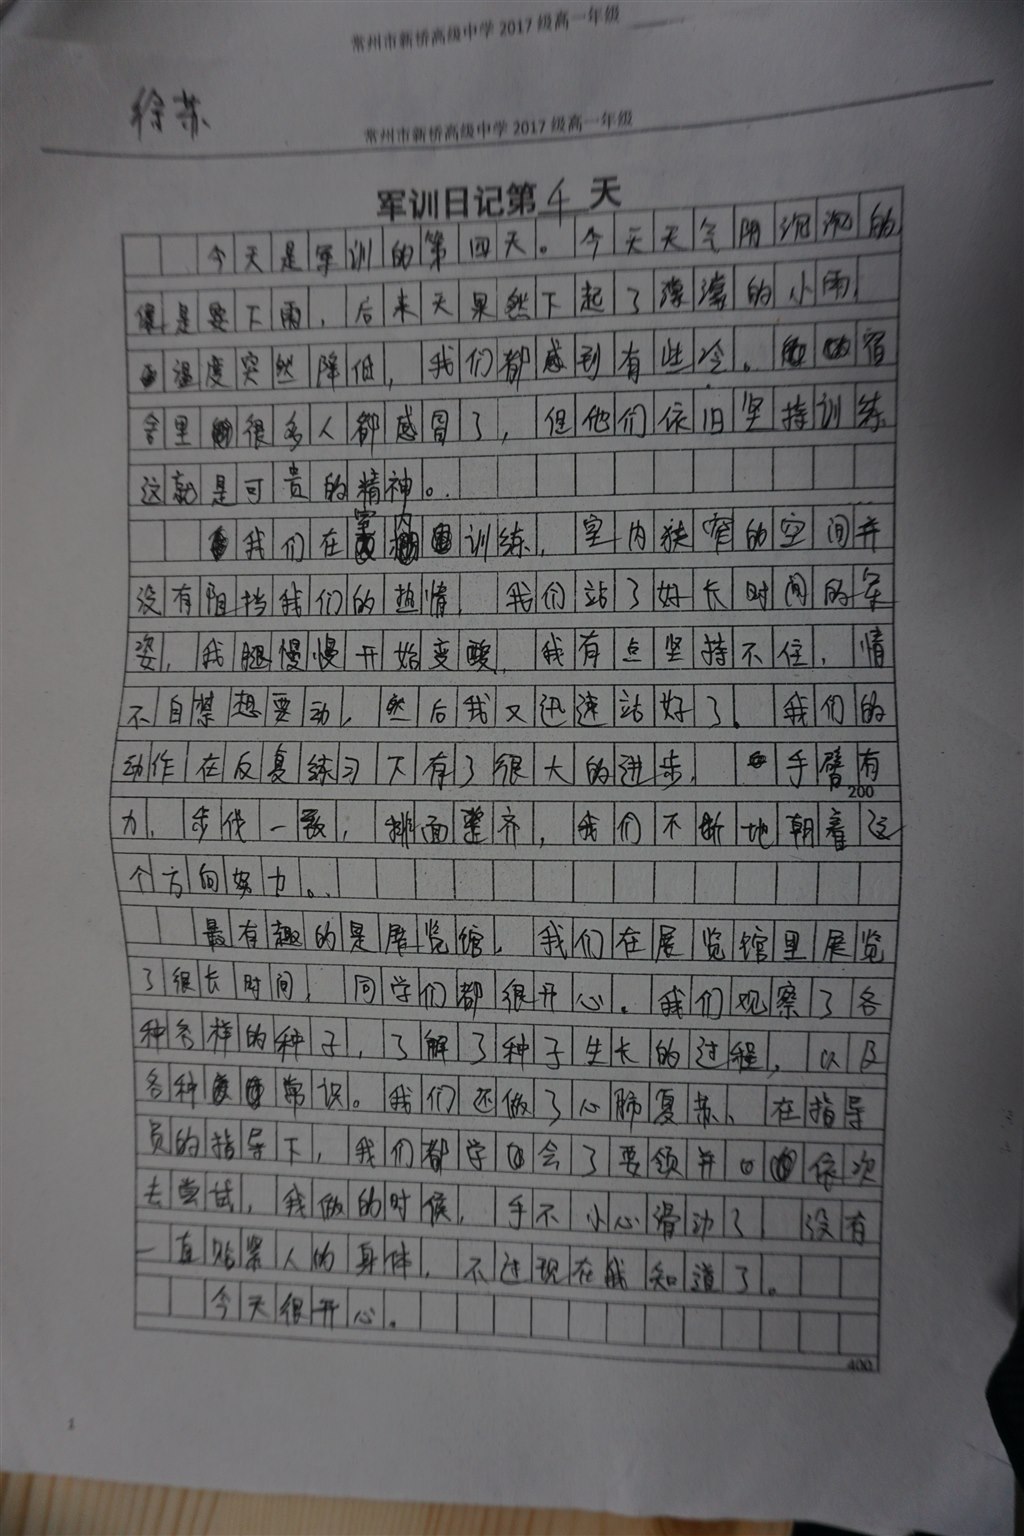 常州市新桥高级中学 2017 级高一年级
徐苏
常州市新桥高级中学 2017 级高一年级
军训日记第 4 天
今天是军训的第四天。今天天气阴沉沉的
像是要下雨，后来天果然下起了濛濛的小雨，
温度突然降低，我们都感到有些冷。宿
舍里很多人都感冒了，但他们依旧坚持训练
这就是可贵的精神。
我们在室内训练，室内狭窄的空间并
没有阻挡我们的热情，我们站了好长时间的军
姿，我腿慢慢开始变酸，我有点坚持不住，情
不自禁想要动，然后我又迅速站好了。我们的
动作在反复练习下有了很大的进步，手臂有
200
力，步伐一致，排面整齐，我们不断地朝着这
个方向努力。
最有趣的是展览馆，我们在展览馆里展览
了很长时间，同学们都很开心。我们观察了各
种各样的种子，了解了种子生长的过程，以及
各种常识。我们还做了心肺复苏、在指导
员的指导下，我们都学会了要领并依次
去尝试，我做的时候，手不小心滑动了 没有
一直贴紧人的身体，不过现在我知道了。
今天很开心。
400
1